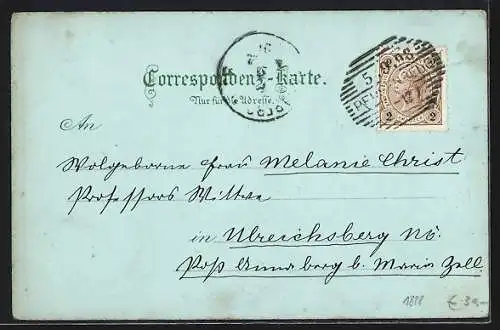 Correspondenz-Karte.
Nur für die Adresse.
An
Wolgeborne Frau Melanie Christ
Professors Wittwe
in Ulreichsberg NÖ.
Post Annaberg b. Maria Zell
2 2
1898
€ 3,-